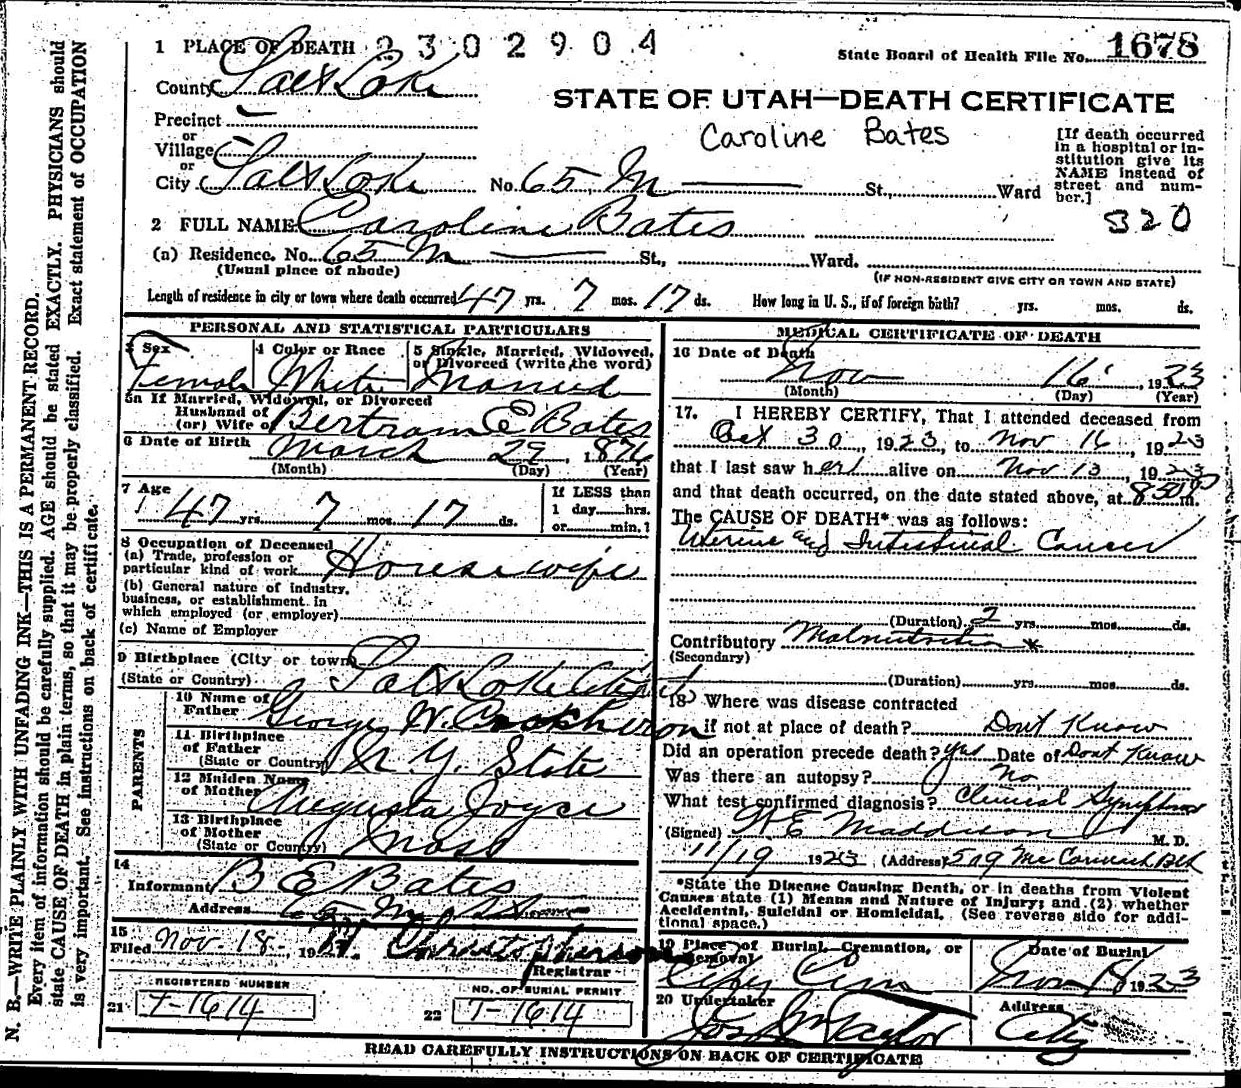 1 PLACE OF DEATH 2302904
State Board of Health File No. 1678
County Salt Lake
STATE OF UTAH—DEATH CERTIFICATE
Precinct
Caroline Bates
or
Village
or
City Salt Lake No. 65, M St., Ward
[If death occurred
in a hospital or in-
stitution give its
NAME instead of
street and num-
ber.]
S20
2 FULL NAME Caroline Bates
(a) Residence. No. 65 M St., Ward.
(Usual place of abode)
(IF NON-RESIDENT GIVE CITY OR TOWN AND STATE)
Length of residence in city or town where death occurred 47 yrs. 7 mos. 17 ds. How long in U. S., if of foreign birth? yrs. mos. ds.
PERSONAL AND STATISTICAL PARTICULARS
3 Sex
Female
4 Color or Race
White
5 Single, Married, Widowed,
or Divorced (write the word)
Married
5a If Married, Widowed, or Divorced
Husband of
(or) Wife of Bertram E Bates
6 Date of Birth March 29, 1876
(Month) (Day) (Year)
7 Age
47 yrs. 7 mos. 17 ds.
If LESS than
1 day hrs.
or min.?
8 Occupation of Deceased
(a) Trade, profession or
particular kind of work Housewife
(b) General nature of industry,
business, or establishment in
which employed (or employer)
(c) Name of Employer
9 Birthplace (City or town)
(State or Country) Salt Lake City
PARENTS
10 Name of
Father George W.
11 Birthplace
of Father
(State or Country) N. Y. State
12 Maiden Name
of Mother Augusta Joyce
13 Birthplace
of Mother
(State or Country) Mass
14
Informant B E Bates
Address 65 M St
15
Filed Nov. 18, 19
Registrar
REGISTERED NUMBER
21 T-1614
NO. OF BURIAL PERMIT
22 T-1614
MEDICAL CERTIFICATE OF DEATH
16 Date of Death
Nov 16, 1923
(Month) (Day) (Year)
17. I HEREBY CERTIFY, That I attended deceased from
Oct 30, 1923, to Nov 16, 1923
that I last saw her alive on Nov 13, 1923
and that death occurred, on the date stated above, at 8 50 m.
The CAUSE OF DEATH* was as follows:
Uterine and Intestinal Cancer
(Duration) 2 yrs. mos. ds.
Contributory Malnutrition *
(Secondary)
(Duration) yrs. mos. ds.
18 Where was disease contracted
if not at place of death? Dont Know
Did an operation precede death? yes Date of Dont Know
Was there an autopsy? No,
What test confirmed diagnosis? Clinical Symptoms
(Signed) W E Maddison M. D.
11/19 1923 (Address) 509 McCornick Bld
*State the Disease Causing Death, or in deaths from Violent
Causes state (1) Means and Nature of Injury; and (2) whether
Accidental, Suicidal or Homicidal. (See reverse side for addi-
tional space.)
19 Place of Burial, Cremation, or
Removal
City Cem
Date of Burial
Nov 1923
20 Undertaker
Jos Wm Taylor
Address
City
READ CAREFULLY INSTRUCTIONS ON BACK OF CERTIFICATE
N. B.—WRITE PLAINLY WITH UNFADING INK—THIS IS A PERMANENT RECORD.
Every item of information should be carefully supplied. AGE should be stated EXACTLY. PHYSICIANS should
state CAUSE OF DEATH in plain terms, so that it may be properly classified. Exact statement of OCCUPATION
is very important. See instructions on back of certificate.